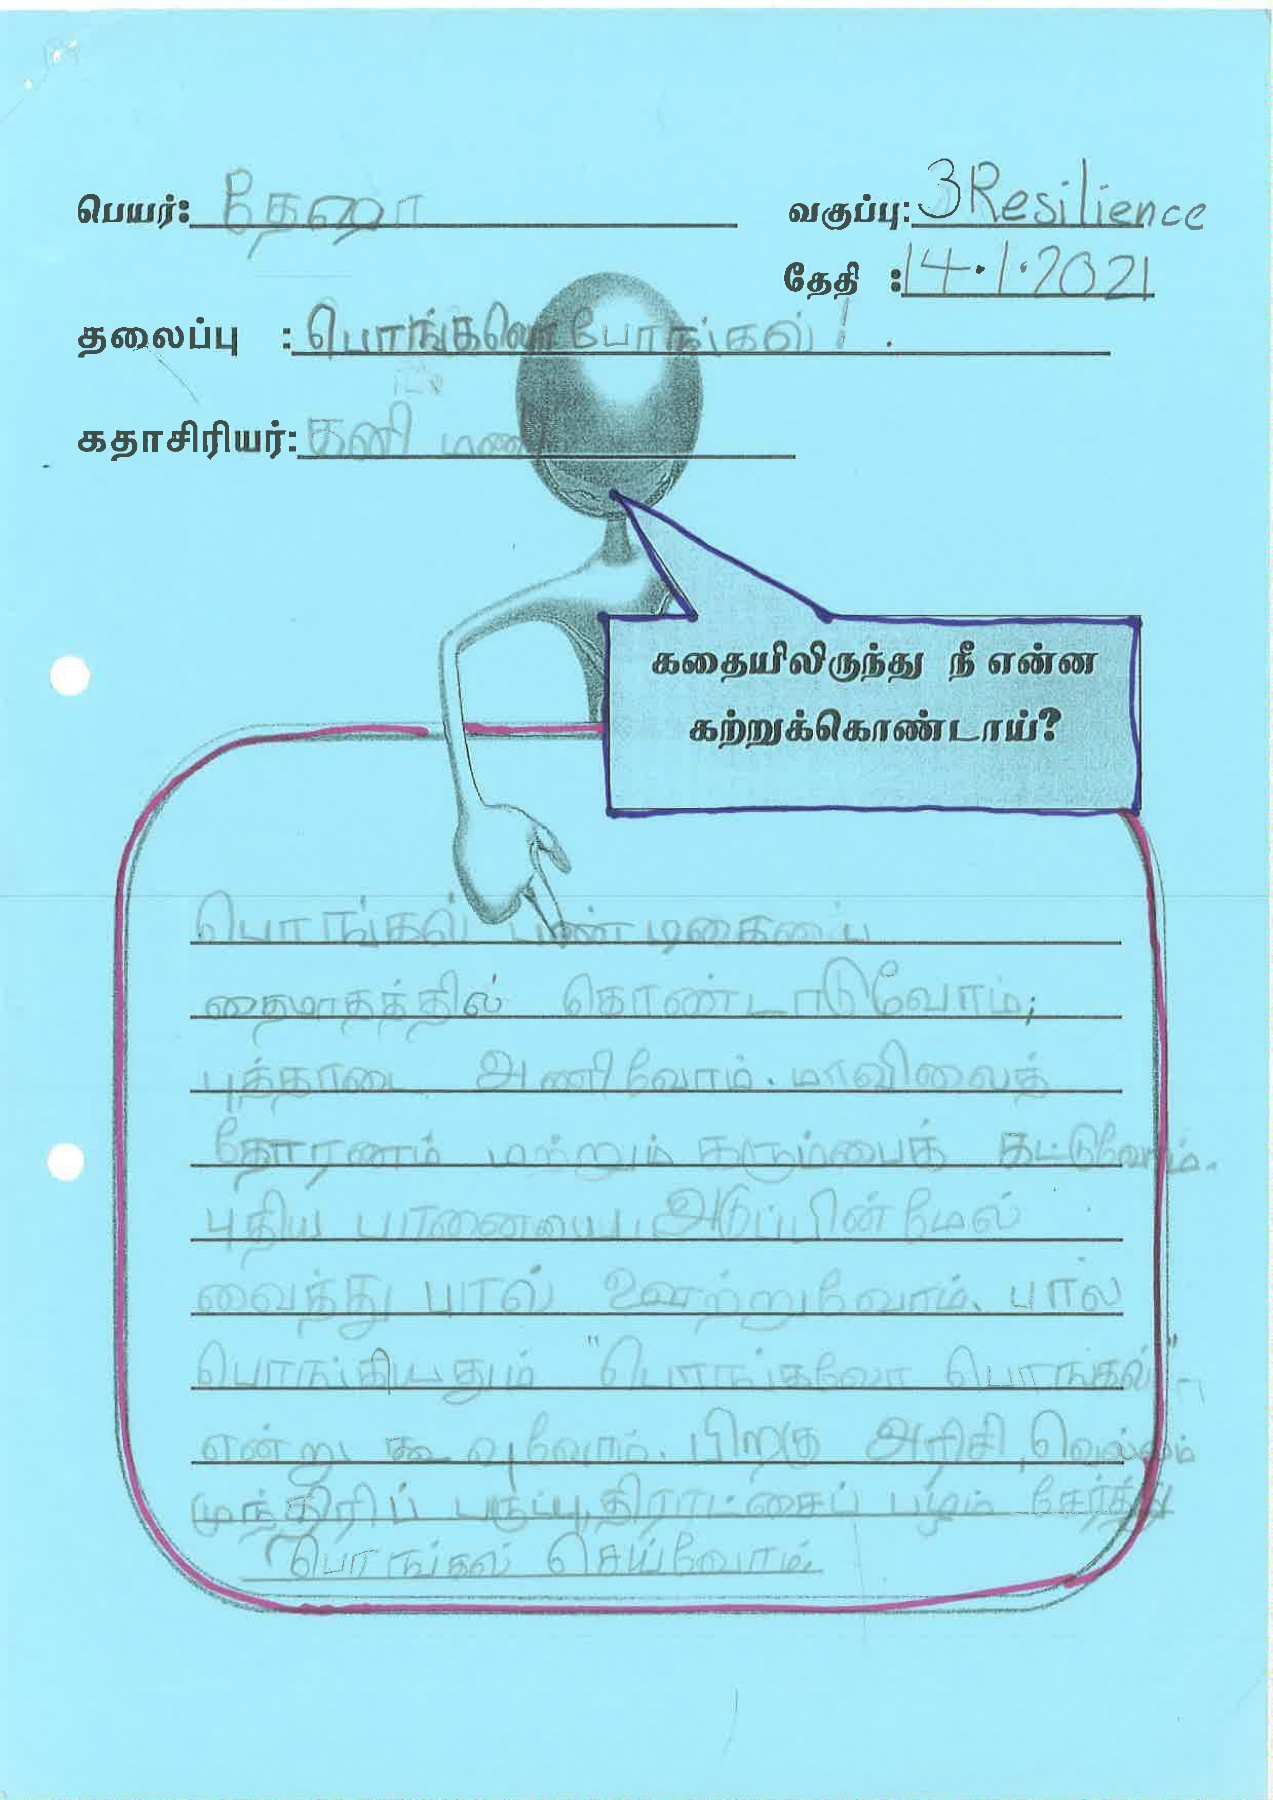 பெயர்: தேஹா வகுப்பு: 3Resilience
தேதி : 14.1.2021
தலைப்பு : பொங்கலோ போங்கல்!
கதாசிரியர்: கனி மணி
கதையிலிருந்து நீ என்ன
கற்றுக்கொண்டாய்?
பொங்கல் பண்டிகையை
தைமாதத்தில் கொண்டாடுவோம்;
புத்தாடை அணிவோம். மாவிலைத்
தோரணம் மற்றும் கரும்பைக் கட்டுவோம்.
புதிய பானையை அடுப்பின்மேல்
வைத்து பால் ஊற்றுவோம். பால்
பொங்கியதும் "பொங்கலோ பொங்கல்"
என்று கூவுவோம். பிறகு அரிசி, வெல்லம்
முந்திரிப் பருப்பு, திராட்சைப் பழம் சேர்த்து
பொங்கல் செய்வோம்.